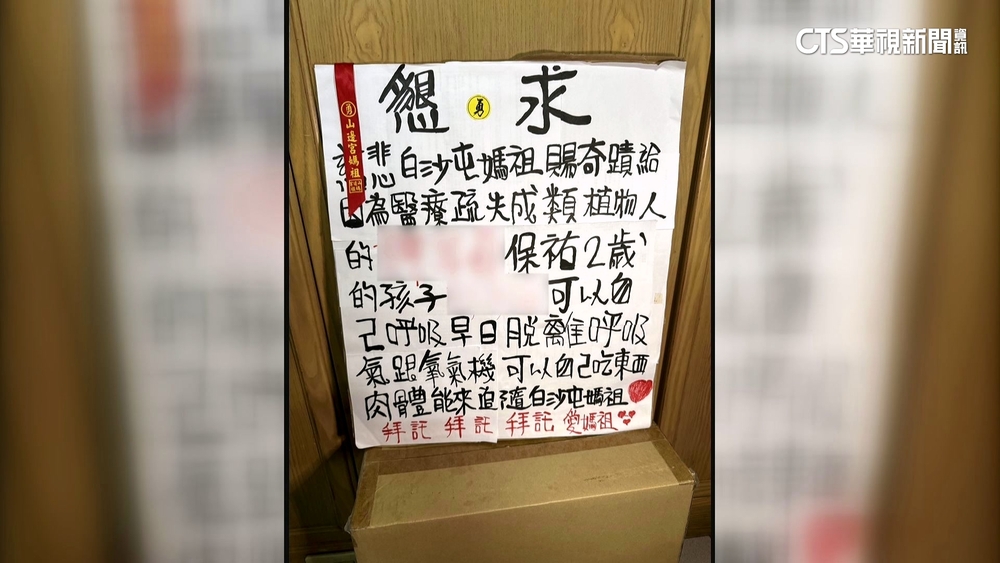 CTS華視新聞資訊
懇 勇 求
勇山邊宮媽祖
慈悲白沙屯媽祖賜奇蹟給
因為醫療疏失成類植物人
的 保祐2歲、
的孩子 可以自
己呼吸早日脫離呼吸
氣跟氧氣機可以自己吃東西
肉體能來追隨白沙屯媽祖
拜託 拜託 拜託 愛媽祖